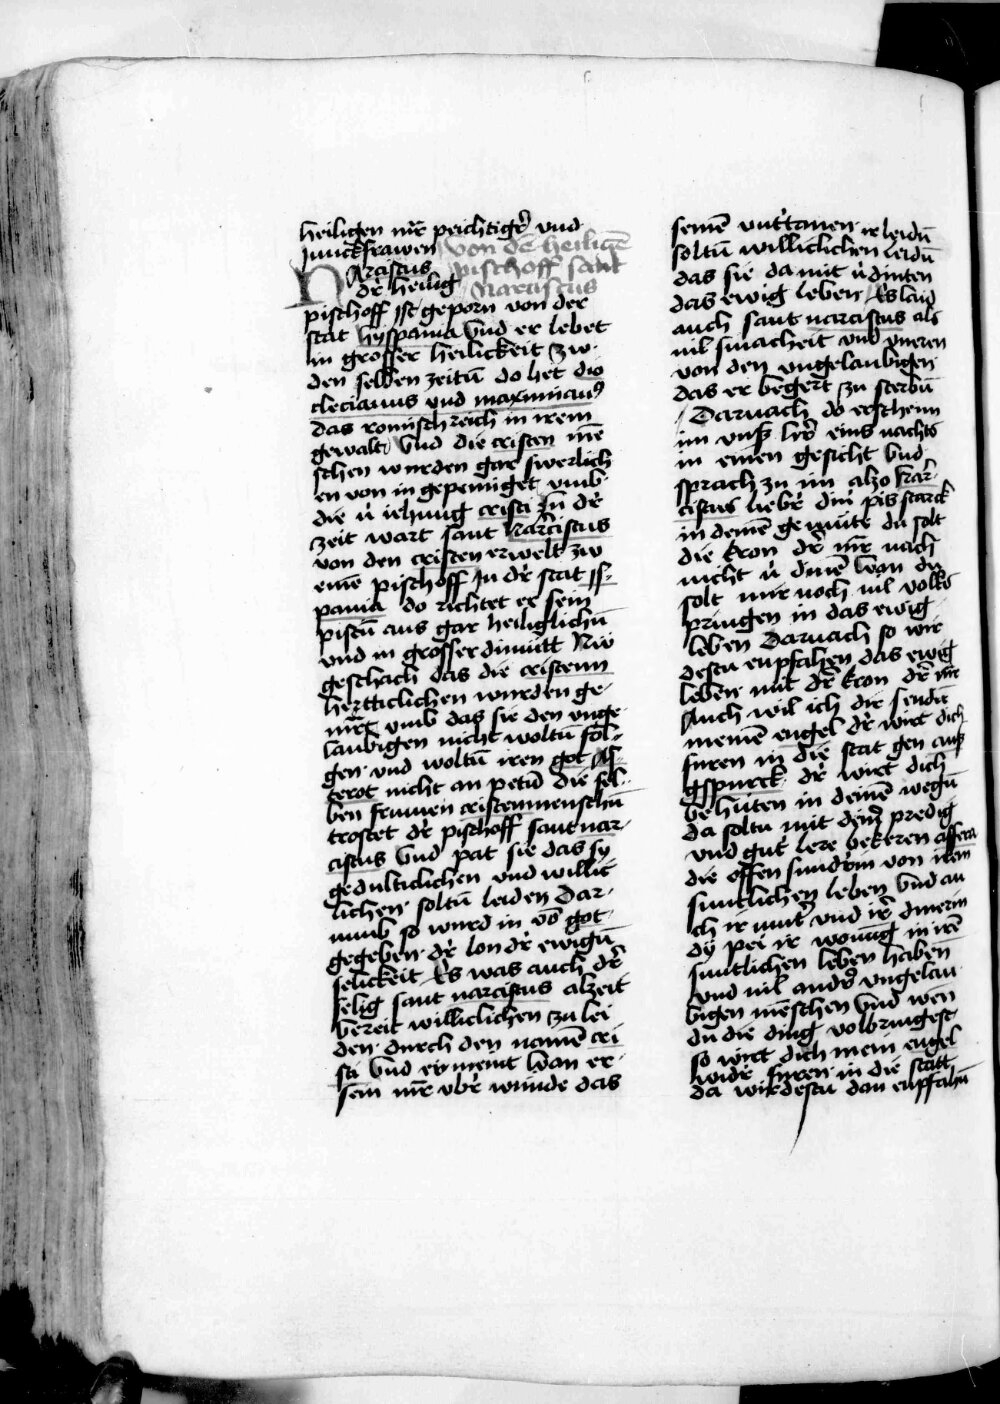 heiligen mr̃ peichtigr̃ vnd
junckfrawen von dē heiligē
NArcissus pischoff sant
dr̃ heilig Narcissus
pischoff ist geporn von der
stat hyspania Vnd er lebet
in grosser heilickeit zw
den selben zeitn̄ do het dio
clecianus vnd maximianus
das romisch reich in irem
gewalt Vnd die cristen mē
schen wurden gar swerlich
en von in gepeiniget vmb
die v̇ iehung cristi In dr̃
zeit wart sant Narcissus
von den cristen erwelt zw
einē pischoff In dr̃ stat js
pania do richtet er sein
pistū aus gar heiliglichn̄
vnd in grosser dimutt Nw
geschach das die cristenn
hertticlichen wurden ge
mr̃t vmb das sie den vnge
laubigen nicht woltn̄ fol
gen vnd woltn̄ iren got As
terot nicht an petn̄ die sel
ben frumen cristenmenschn̄
trostet dr̃ pischoff sant nar
cissus Vnd pat sie das sy
gedulticlichen vnd willic
lichen soltn̄ leiden Dar
vmb so wurd in vō got
gegeben dr̃ lon dr̃ ewign̄
selickeit Es was auch dr̃
selig sant narcissus alzeit
bereit williclichen zu lei
den durch den namē cri
sti Vnd er meint wan er
sein mr̃ vbr̃ wunde das
seinē vntt̃anen ir leidn̄
soltn̄ williclichen leidn̄
das sie da mit v̇dinten
das ewig leben Es laid
auch sant narcissus als
vil smacheit vnd vneren
von den vngelaubigen
das er begert zu sterbn̄
Darnach do erschein
im vnsr̃ hr̃ eins nachts
in einem gesicht Vnd
sprach zu im alzo Nar
cissus liebr̃ din̄ pis starck
in deinē gemute du solt
die kron dr̃ mr̃r nach
nicht v̇ dinē wan du
solt mir noch vil volks
pringen in das ewig
leben Darnach so wir
destu enpfahen das ewig
leben mit dr̃ kron dr̃ mr̃r
Auch wil ich dir sendn̄
meinē engel dr̃ wirt dich
furen in die stat gen aus
gspurck dr̃ wirt dich
behuten in deinē wegn̄
da soltu mit deinr̃ predig
vnd gutr̃ lere bekeren affera
die offen sundrin von irem
suntlichen leben Vnd au
ch ir mutr̃ vnd ir̃ dinerin
dy pei ir wonūg in irē
suntlichen leben haben
vnd vil andr̃ vngelau
bigen mēschen Vnd wen
du die ding volbringest
so wirt dich mein engel
widr̃ furen in die statt
da wirdestu dan enpffahn̄